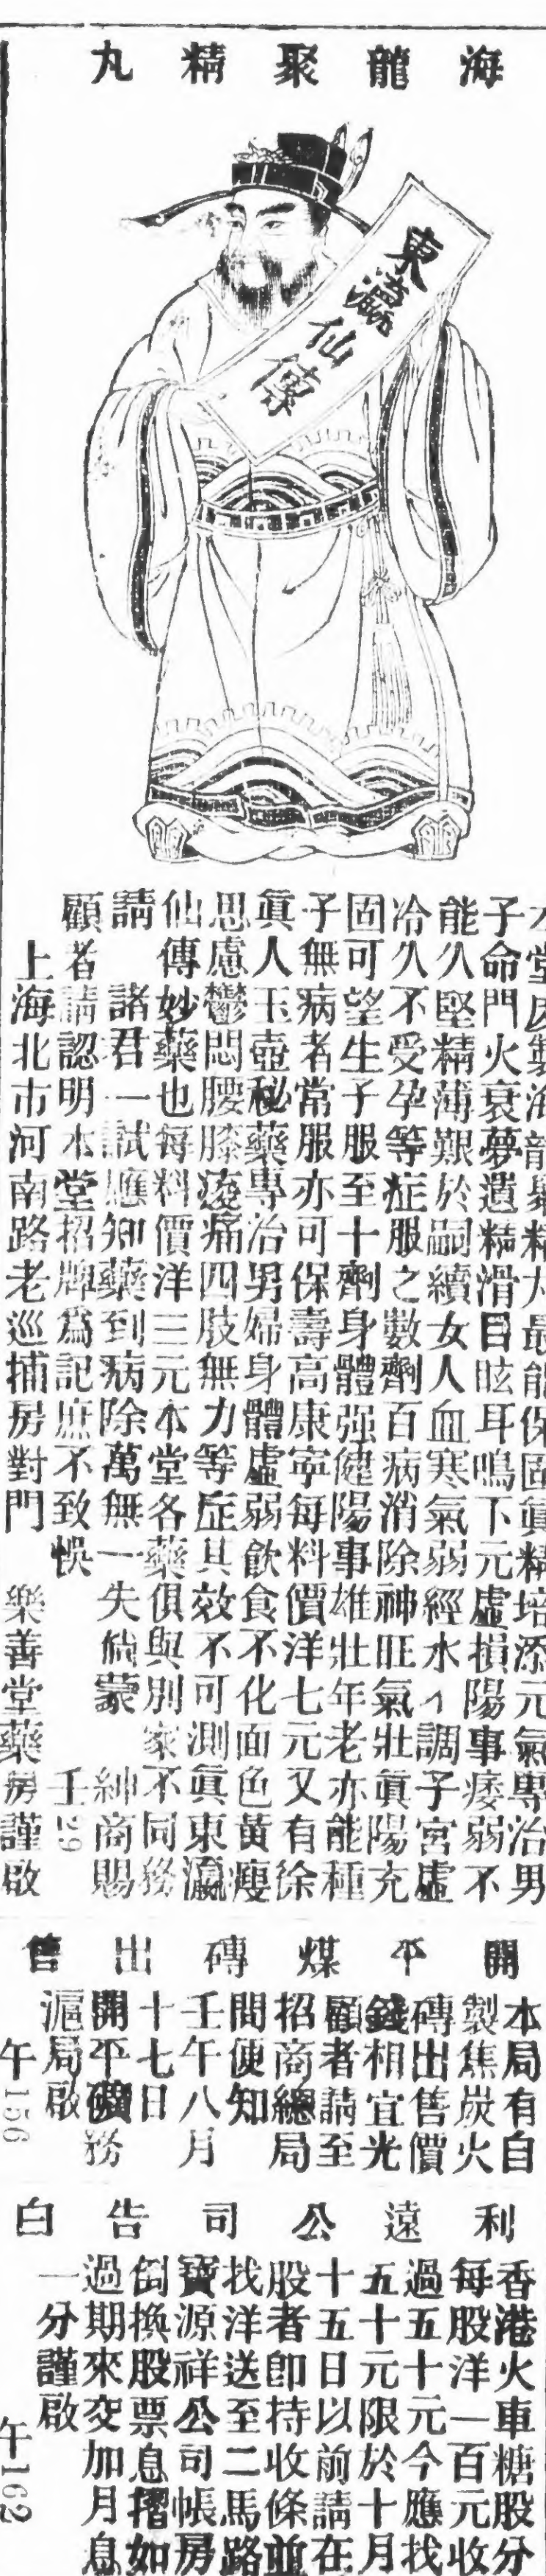 海龍聚精丸
東瀛仙傳
堂製海龍聚精丸最能保固眞精培添元氣專治男
子命門火衰夢遺精滑目眩耳鳴下元虛損陽事痿弱不
能久堅精薄艱於嗣續女人血寒氣弱經水調子宮虛
冷久不受孕等症服之數劑百病消除神旺氣壯眞陽充
固可望生子服至十劑身體强健陽事雄壯年老亦能種
子無病者常服亦可保壽高康寜每料價洋七元又有徐
眞人玉壺秘藥專治男婦身體虛弱飲食不化面色黃瘦
思慮鬱悶腰膝痠痛四肢無力等症其效不可測眞東瀛
仙傳妙藥也每料價洋三元本堂各藥俱與別家不同務
請 諸君一試應知藥到病除萬無一失倘蒙 紳商賜
顧者請認明本堂招牌爲記庶不致悞 壬29
上海北市河南路老巡捕房對門 樂善堂藥房謹啟
開平煤磚出售
本局有自
製焦炭火
磚出售價
錢相宜光
顧者請至
招商總局
問便知
壬午八月
十七日
開平礦務
滬局啟 午156
利遠公司告白
香港火車糖股分
每股洋一百元收
過五十元今應找
五十元限於十月
十五日以前請在
股者卽持收條並
找洋送至二馬路
寶源祥公司帳房
倒換股票息摺如
過期來交加月息
一分謹啟 午162